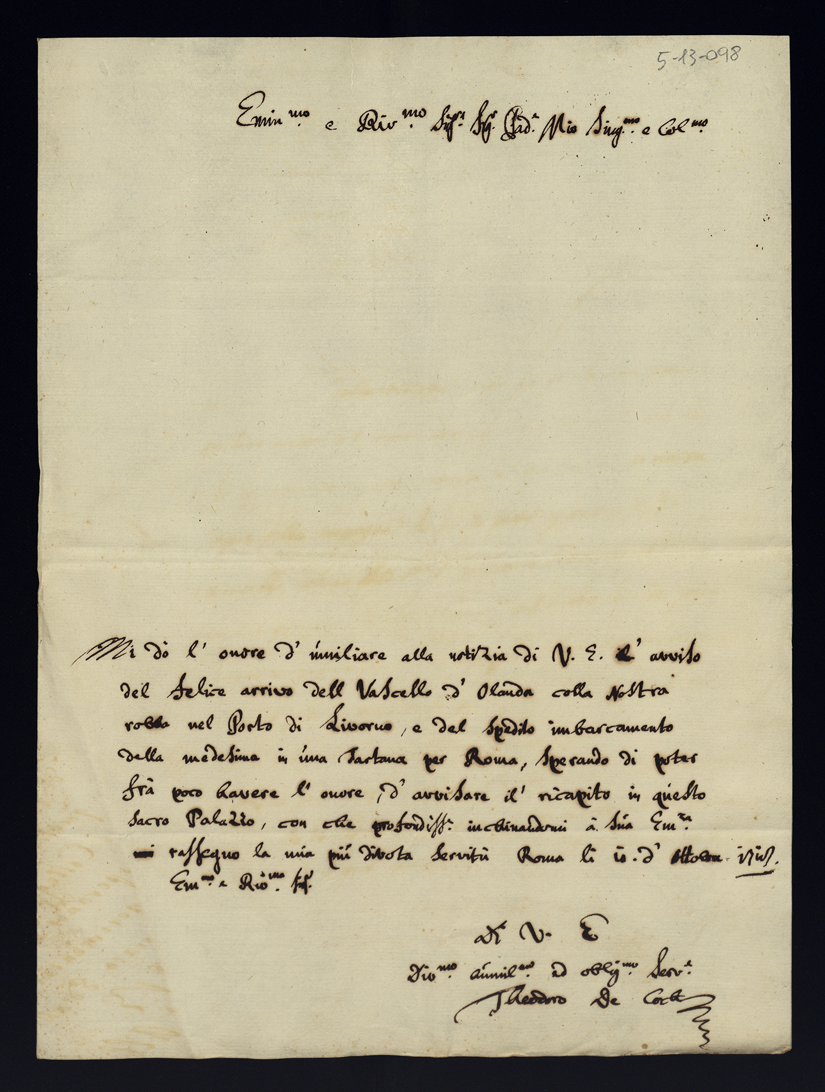 5-13-098
Emin.mo e Rev.mo Sig.r Sig.r Pad.e Mio Sing.mo e Col.mo
Mi dò l' onore d' úmiliare alla notizia di V. E. il' avviso
del felice arrivo dell Vascello d' Olanda colla Nostra
robba nel Porto di Livorno, e del spedito imbarcamento
della medesima in úna Tartana per Roma, sperando di poter
frà poco havere l' onore, d' avvisare il' ricapito in qúesto
sacro Palazzo, con che profondiss.e inchinandomi à Súa Em.za
rassegno la mia piú divota servitú Roma li 10. d' Ottobre
Em.mo e Rev.mo Sig.r
Di V. E
Div.mo aúmil.mo ed oblig.mo Serv.e
Theodoro De